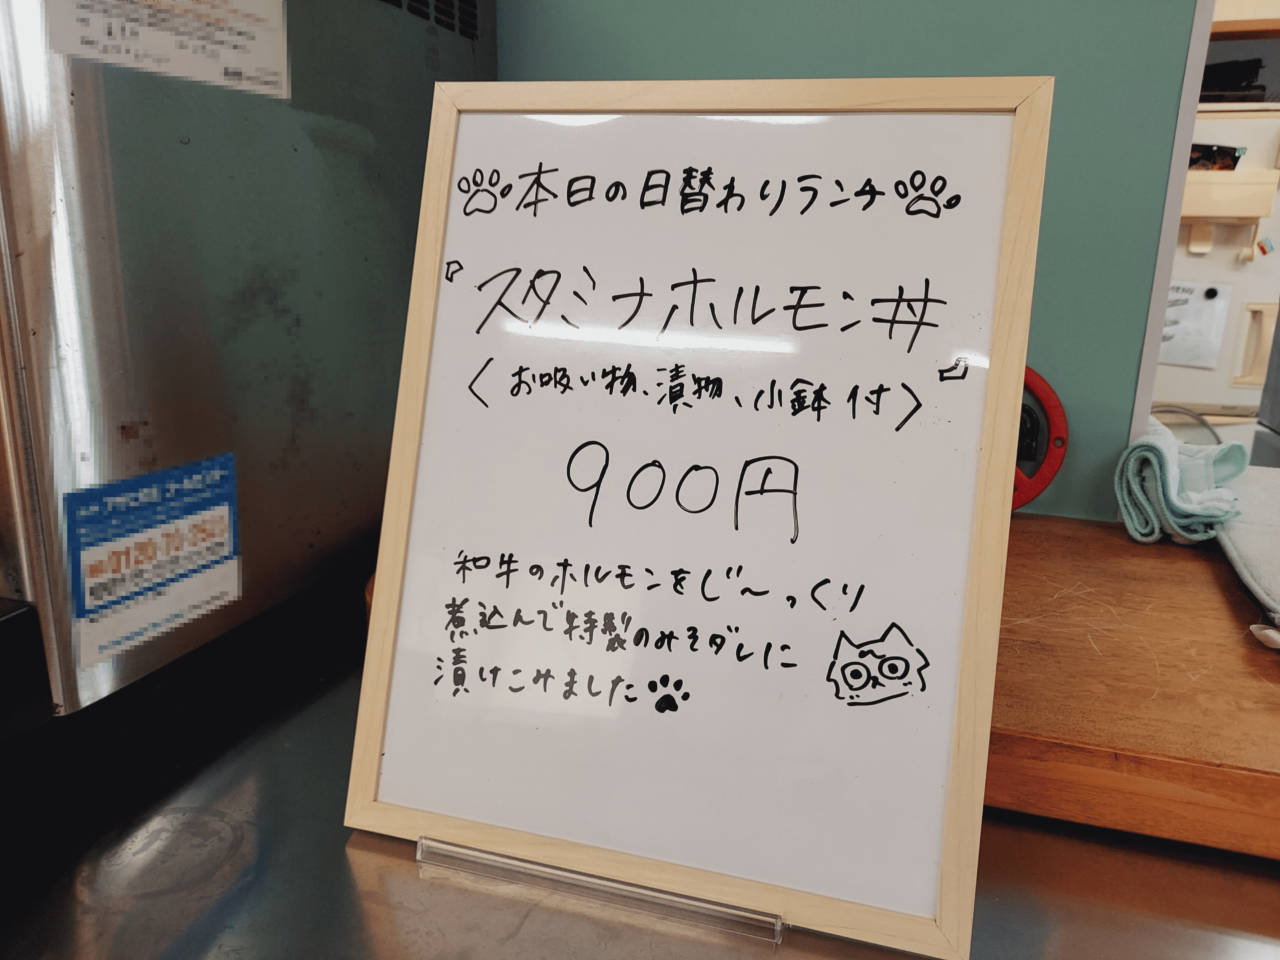 本日の日替わりランチ
『スタミナホルモン丼』
〈お吸い物、漬物、小鉢付〉
900円
和牛のホルモンをじ〜っくり
煮込んで特製のみそダレに
漬けこみました